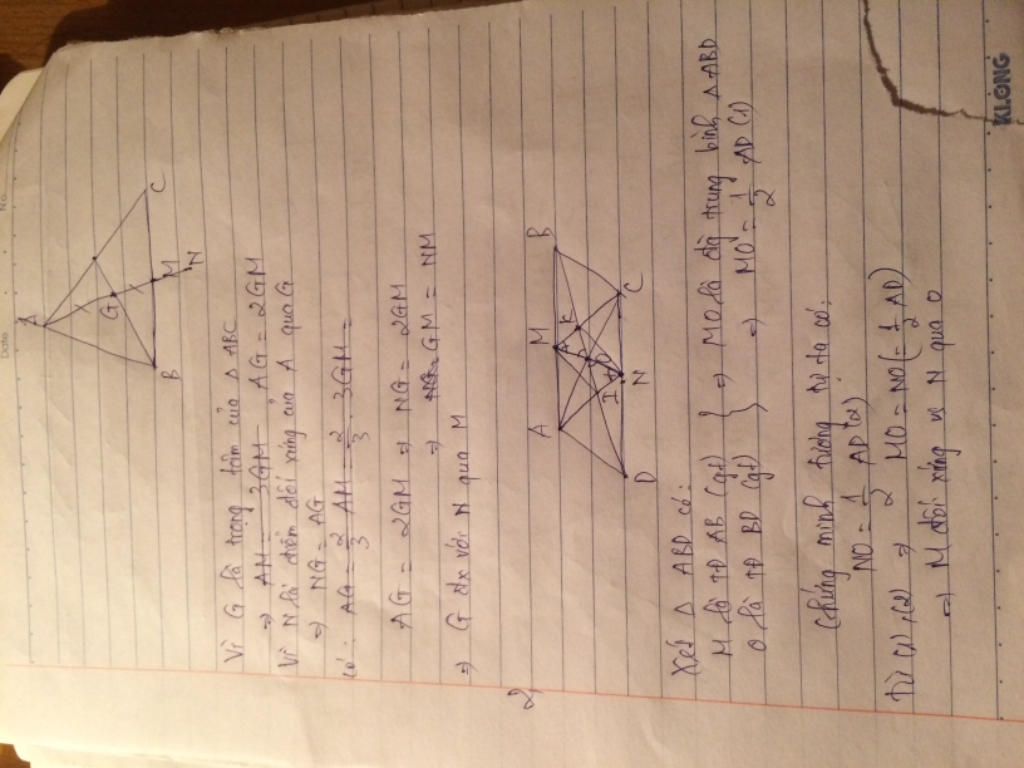 No.
Date
A
G
B
M
C
N
Vì G là trọng tâm của Δ ABC
⇒ AM = 3GM AG = 2GM
Vì N là điểm đối xứng của A qua G
⇒ NG = AG
có: AG = 2/3 AM = 2/3 . 3GM =
AG = 2GM ⇒ NG = 2GM
⇒ GM = NM
⇒ G đx với N qua M
2)
A M B
K
O
I
D N C
Xét Δ ABD có:
M là TĐ AB (gt)
O là TĐ BD (gt)
} ⇒ MO là đg trung bình Δ ABD
⇒ MO = 1/2 AD (1)
Chứng minh tương tự ta có:
NO = 1/2 AD (2)
Từ (1), (2) ⇒ MO = NO (= 1/2 AD)
⇒ M đối xứng vs N qua O
KLONG